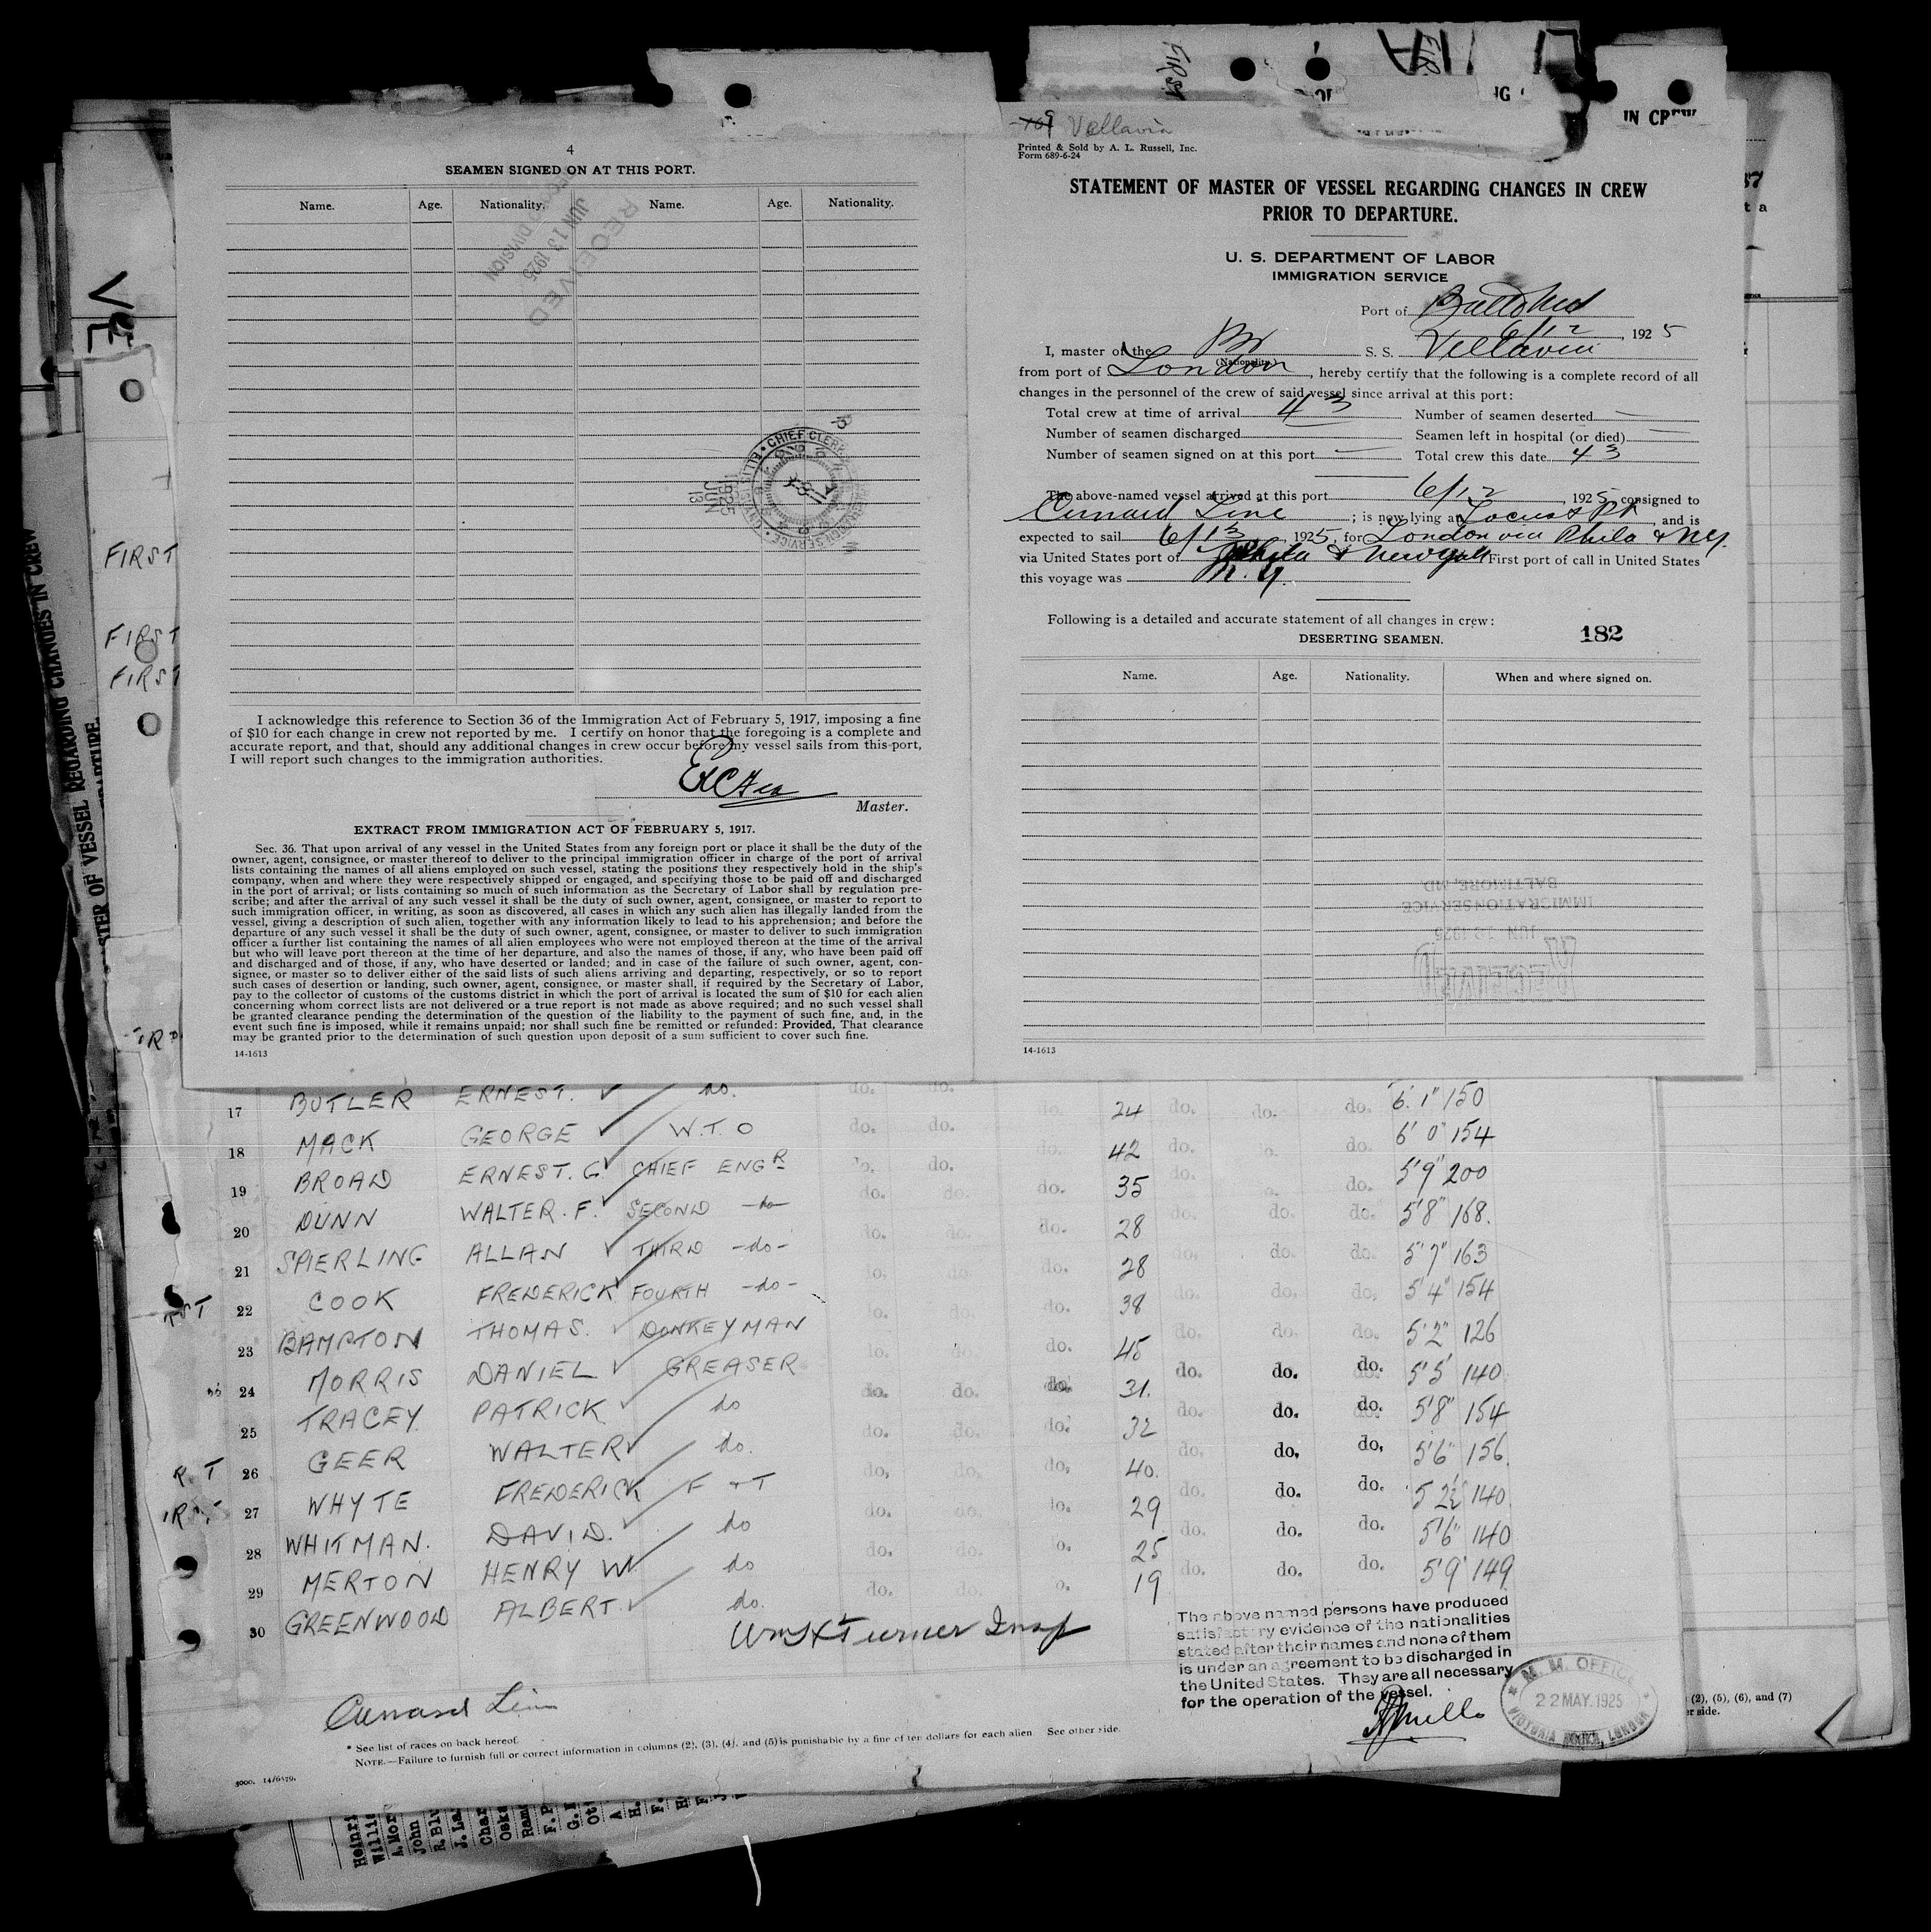 4
SEAMEN SIGNED ON AT THIS PORT.
Name. Age. Nationality. Name. Age. Nationality.
RECEIVED
JUN 13 1925
DIVISION
CHIEF CLERK
ELLIS ISLAND
1925
JUN
13
I acknowledge this reference to Section 36 of the Immigration Act of February 5, 1917, imposing a fine
of $10 for each change in crew not reported by me. I certify on honor that the foregoing is a complete and
accurate report, and that, should any additional changes in crew occur before my vessel sails from this port,
I will report such changes to the immigration authorities.
Master.
EXTRACT FROM IMMIGRATION ACT OF FEBRUARY 5, 1917.
Sec. 36. That upon arrival of any vessel in the United States from any foreign port or place it shall be the duty of the
owner, agent, consignee, or master thereof to deliver to the principal immigration officer in charge of the port of arrival
lists containing the names of all aliens employed on such vessel, stating the positions they respectively hold in the ship's
company, when and where they were respectively shipped or engaged, and specifying those to be paid off and discharged
in the port of arrival; or lists containing so much of such information as the Secretary of Labor shall by regulation pre-
scribe; and after the arrival of any such vessel it shall be the duty of such owner, agent, consignee, or master to report to
such immigration officer, in writing, as soon as discovered, all cases in which any such alien has illegally landed from the
vessel, giving a description of such alien, together with any information likely to lead to his apprehension; and before the
departure of any such vessel it shall be the duty of such owner, agent, consignee, or master to deliver to such immigration
officer a further list containing the names of all alien employees who were not employed thereon at the time of the arrival
but who will leave port thereon at the time of her departure, and also the names of those, if any, who have been paid off
and discharged and of those, if any, who have deserted or landed; and in case of the failure of such owner, agent, con-
signee, or master so to deliver either of the said lists of such aliens arriving and departing, respectively, or so to report
such cases of desertion or landing, such owner, agent, consignee, or master shall, if required by the Secretary of Labor,
pay to the collector of customs of the customs district in which the port of arrival is located the sum of $10 for each alien
concerning whom correct lists are not delivered or a true report is not made as above required; and no such vessel shall
be granted clearance pending the determination of the question of the liability to the payment of such fine, and, in the
event such fine is imposed, while it remains unpaid; nor shall such fine be remitted or refunded: Provided, That clearance
may be granted prior to the determination of such question upon deposit of a sum sufficient to cover such fine.
14-1613
Vellavia
Printed & Sold by A. L. Russell, Inc.
Form 689-6-24
STATEMENT OF MASTER OF VESSEL REGARDING CHANGES IN CREW
PRIOR TO DEPARTURE.
U. S. DEPARTMENT OF LABOR
IMMIGRATION SERVICE
Port of Balto Md
6/12, 1925
I, master of the Br S. S. Vellavia
(Nationality)
from port of London, hereby certify that the following is a complete record of all
changes in the personnel of the crew of said vessel since arrival at this port:
Total crew at time of arrival 43 Number of seamen deserted —
Number of seamen discharged Seamen left in hospital (or died) —
Number of seamen signed on at this port — Total crew this date 43
The above-named vessel arrived at this port 6/12, 1925 consigned to
Cunard Line; is now lying at Locust Pt, and is
expected to sail 6/13, 1925, for London via Phila & NY.
via United States port of Phila & New York First port of call in United States
this voyage was N. Y.
Following is a detailed and accurate statement of all changes in crew:
DESERTING SEAMEN. 182
Name. Age. Nationality. When and where signed on.
RECEIVED
JUN 13 1925
IMMIGRATION SERVICE
BALTIMORE, MD
14-1613
17 BUTLER ERNEST. do. do. do. do. 24 do. do. do. 6' 1" 150
18 MACK GEORGE W.T.O do. do. do. 42 do. do. 6' 0" 154
19 BROAD ERNEST. G. CHIEF ENGR do. do. do. 35 do. do. 5' 9" 200
20 DUNN WALTER. F. SECOND -do- do. do. do. 28 do. do. do. 5' 8" 168.
21 SPIERLING ALLAN THIRD -do- do. do. do. 28 do. do. do. 5' 7" 163
22 COOK FREDERICK FOURTH -do- do. do. do. 38 do. do. do. 5' 4" 154
23 BAMPTON THOMAS. DONKEYMAN do. do. do. 45 do. do. do. 5' 2" 126
24 MORRIS DANIEL GREASER do. do. do. 31. do. do. do. 5' 5' 140
25 TRACEY. PATRICK do do. do. do. 32 do. do. do. 5' 8" 154
26 GEER WALTER do. do. do. do. 40. do. do. do. 5' 6" 156.
27 WHYTE FREDERICK F + T do. do. do. 29 do. do. do. 5 2½ 140.
28 WHITMAN. DAVID. do do. do. do. 25 do. do. do. 5' 6" 140
29 MERTON HENRY W do do. do. do. 19 do. do. do. 5' 9' 149.
30 GREENWOOD ALBERT. do.
Wm H Turner Insp
The above named persons have produced
satisfactory evidence of the nationalities
stated after their names and none of them
is under an agreement to be discharged in
the United States. They are all necessary
for the operation of the vessel.
M. M. OFFICE
22 MAY. 1925
VICTORIA DOCKS, LONDON
Cunard Line
* See list of races on back hereof.
NOTE.—Failure to furnish full or correct information in columns (2), (3), (4), and (5) is punishable by a fine of ten dollars for each alien See other side.
(2), (5), (6), and (7)
FIRST
FIRST
FIRST
FIRST
IN CREW